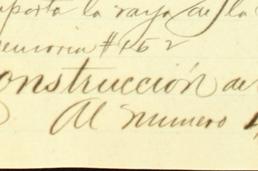 mporta la raya de la
emoria # 152
onstrucción de
Al numero 4